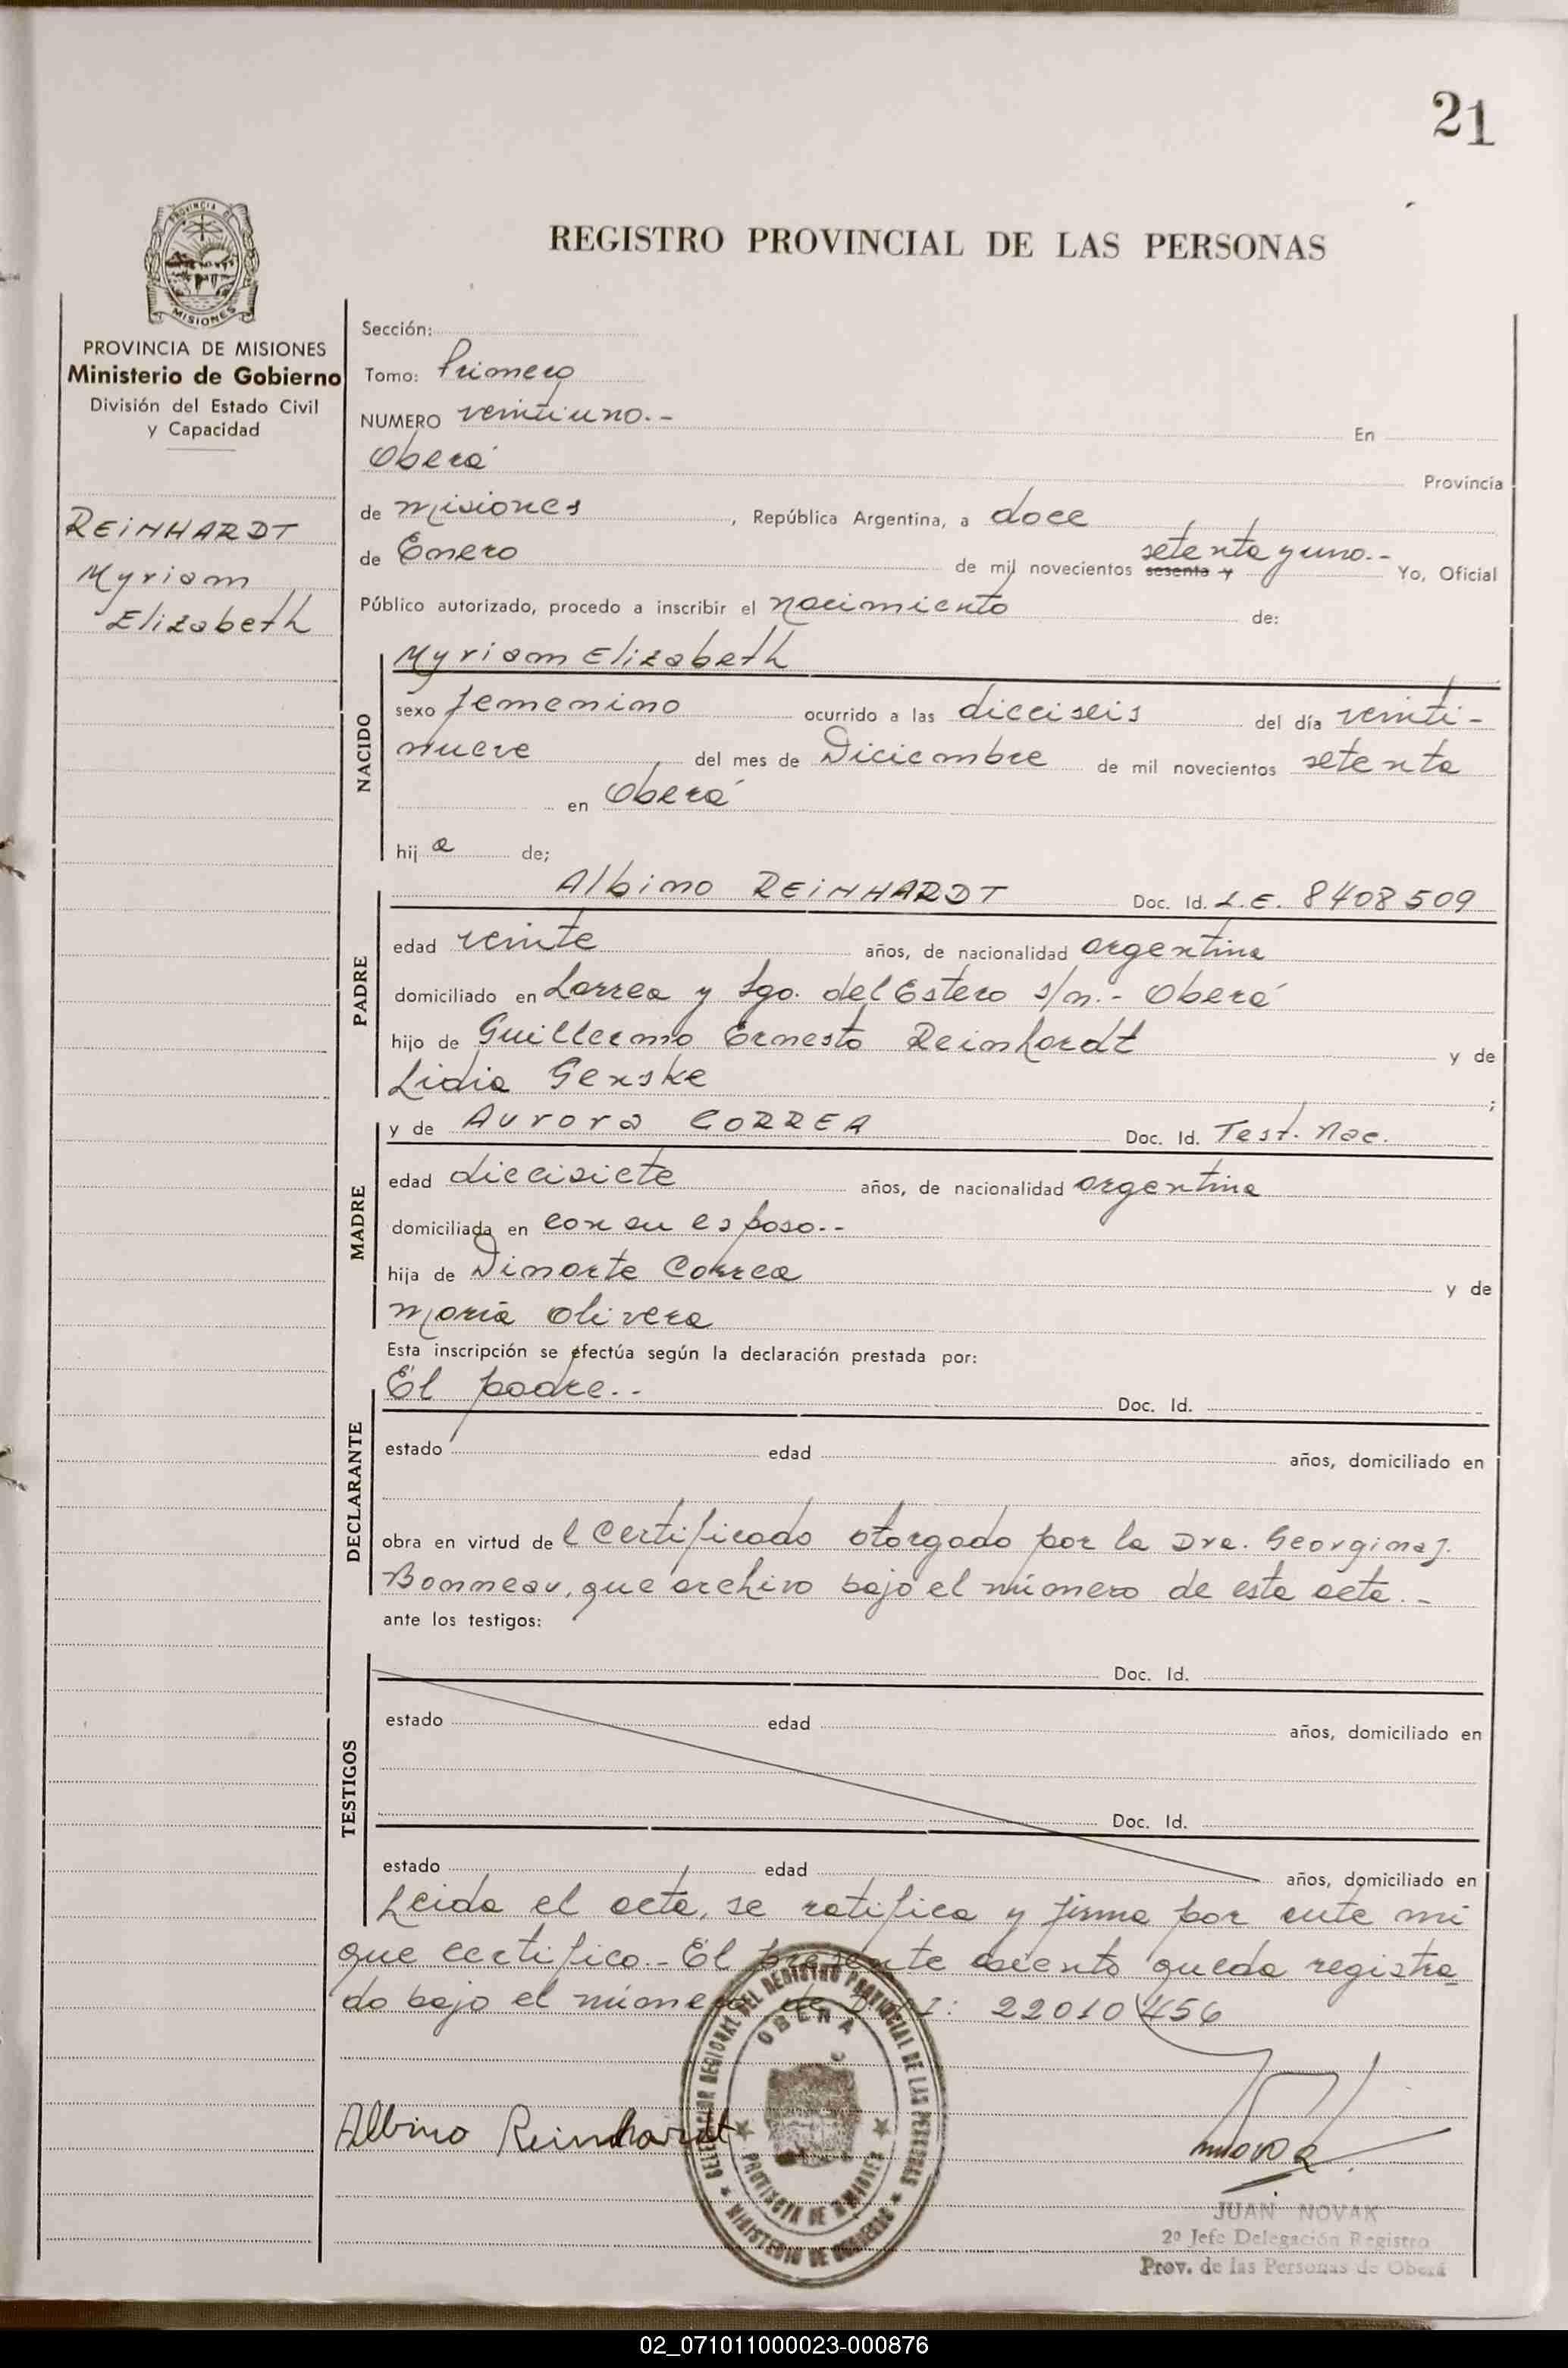 21
PROVINCIA DE
MISIONES
REGISTRO PROVINCIAL DE LAS PERSONAS
PROVINCIA DE MISIONES
Ministerio de Gobierno
División del Estado Civil
y Capacidad
REINHARDT
Myriam
Elizabeth
Sección:
Tomo: Primero
NUMERO veintiuno.- En
Oberá Provincia
de Misiones, República Argentina, a doce
de Enero de mil novecientos sesenta y setenta y uno.- Yo, Oficial
Público autorizado, procedo a inscribir el nacimiento de:
NACIDO
Myriam Elizabeth
sexo femenino ocurrido a las dieciseis del día veinti-
nueve del mes de Diciembre de mil novecientos setenta
en Oberá
hij a de;
PADRE
Albino REINHARDT Doc. Id. L.E. 8408509
edad veinte años, de nacionalidad argentina
domiciliado en Larrea y Sgo. del Estero s/n.- Oberá
hijo de Guillermo Ernesto Reinhardt y de
Lidia Genske ;
MADRE
y de Aurora CORREA Doc. Id. Test. Nac.
edad diecisiete años, de nacionalidad argentina
domiciliada en con su esposo.--
hija de Dinarte Correa y de
María Olivera
Esta inscripción se efectúa según la declaración prestada por:
DECLARANTE
El padre.-- Doc. Id.
estado edad años, domiciliado en
obra en virtud de l certificado otorgado por la Dra. Georgina J.
Bonneau, que archivo bajo el número de esta acta.-
ante los testigos:
TESTIGOS
Doc. Id.
estado edad años, domiciliado en
Doc. Id.
estado edad años, domiciliado en
Leida el acta, se ratifica y firma por ante mi
que certifico.- El presente asiento queda registra-
do bajo el número de D.N.I: 22010456
DELEGACION REGIONAL DEL REGISTRO PROVINCIAL DE LAS PERSONAS
OBERA
PROVINCIA DE MISIONES
MINISTERIO DE GOBIERNO
Albino Reinhardt
JUAN NOVAK
2º Jefe Delegación Registro
Prov. de las Personas de Oberá
02_071011000023-000876